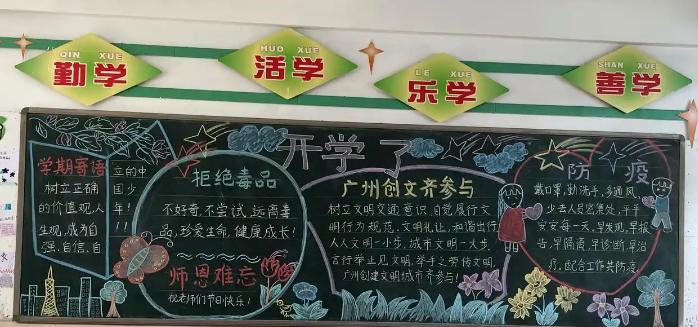 QIN XUE
勤学
HUO XUE
活学
LE XUE
乐学
SHAN XUE
善学
开学了
学期寄语
树立正确
的价值观,人
生观,成为自
强、自信、自
立的中
国少
年!
拒绝毒品
不好奇,不尝试,远离毒
品,珍爱生命,健康成长!
师恩难忘
祝老师们节日快乐!
广州创文齐参与
树立文明交通意识,自觉履行文
明行为规范,文明礼让,和谐出行
人人文明一小步,城市文明一大步,
言行举止见文明,举手之劳传文明,
广州创建文明城市齐参与!
防疫
戴口罩,勤洗手,多通风
少去人员密集处,平平
安安每一天,早发现,早报
告,早隔离,早诊断,早治
疗,配合工作共防疫。